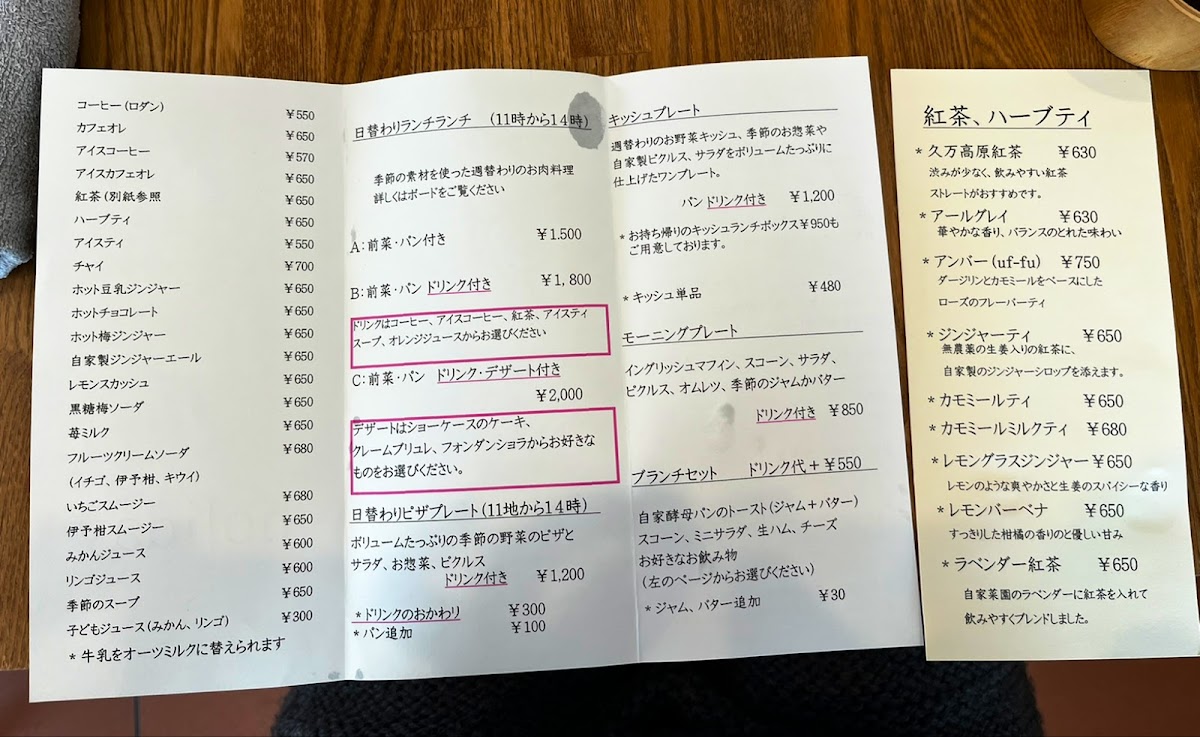 コーヒー(ロダン) ¥550
カフェオレ ¥650
アイスコーヒー ¥570
アイスカフェオレ ¥650
紅茶(別紙参照 ¥650
ハーブティ ¥650
アイスティ ¥550
チャイ ¥700
ホット豆乳ジンジャー ¥650
ホットチョコレート ¥650
ホット梅ジンジャー ¥650
自家製ジンジャーエール ¥650
レモンスカッシュ ¥650
黒糖梅ソーダ ¥650
苺ミルク ¥650
フルーツクリームソーダ ¥680
(イチゴ、伊予柑、キウイ)
いちごスムージー ¥680
伊予柑スムージー ¥650
みかんジュース ¥600
リンゴジュース ¥600
季節のスープ ¥650
子どもジュース(みかん、リンゴ) ¥300
*牛乳をオーツミルクに替えられます
日替わりランチランチ (11時から14時)
季節の素材を使った週替わりのお肉料理
詳しくはボードをご覧ください
A:前菜・パン付き ¥1.500
B:前菜・パン ドリンク付き ¥1,800
ドリンクはコーヒー、アイスコーヒー、紅茶、アイスティ
スープ、オレンジジュースからお選びください
C:前菜・パン ドリンク・デザート付き
¥2,000
デザートはショーケースのケーキ、
クレームブリュレ、フォンダンショラからお好きな
ものをお選びください。
日替わりピザプレート(11地から14時)
ボリュームたっぷりの季節の野菜のピザと
サラダ、お惣菜、ピクルス
ドリンク付き ¥1,200
*ドリンクのおかわり ¥300
*パン追加 ¥100
キッシュプレート
週替わりのお野菜キッシュ、季節のお惣菜や
自家製ピクルス、サラダをボリュームたっぷりに
仕上げたワンプレート。
パン ドリンク付き ¥1,200
*お持ち帰りのキッシュランチボックス¥950も
ご用意しております。
*キッシュ単品 ¥480
モーニングプレート
イングリッシュマフィン、スコーン、サラダ、
ピクルス、オムレツ、季節のジャムかバター
ドリンク付き ¥850
ブランチセット ドリンク代+¥550
自家酵母パンのトースト(ジャム+バター)
スコーン、ミニサラダ、生ハム、チーズ
お好きなお飲み物
(左のページからお選びください)
*ジャム、バター追加 ¥30
紅茶、ハーブティ
*久万高原紅茶 ¥630
渋みが少なく、飲みやすい紅茶
ストレートがおすすめです。
*アールグレイ ¥630
華やかな香り、バランスのとれた味わい
*アンバー(uf-fu) ¥750
ダージリンとカモミールをベースにした
ローズのフレーバーティ
*ジンジャーティ ¥650
無農薬の生姜入りの紅茶に、
自家製のジンジャーシロップを添えます。
*カモミールティ ¥650
*カモミールミルクティ ¥680
*レモングラスジンジャー¥650
レモンのような爽やかさと生姜のスパイシーな香り
*レモンバーベナ ¥650
すっきりした柑橘の香りのと優しい甘み
*ラベンダー紅茶 ¥650
自家菜園のラベンダーに紅茶を入れて
飲みやすくブレンドしました。